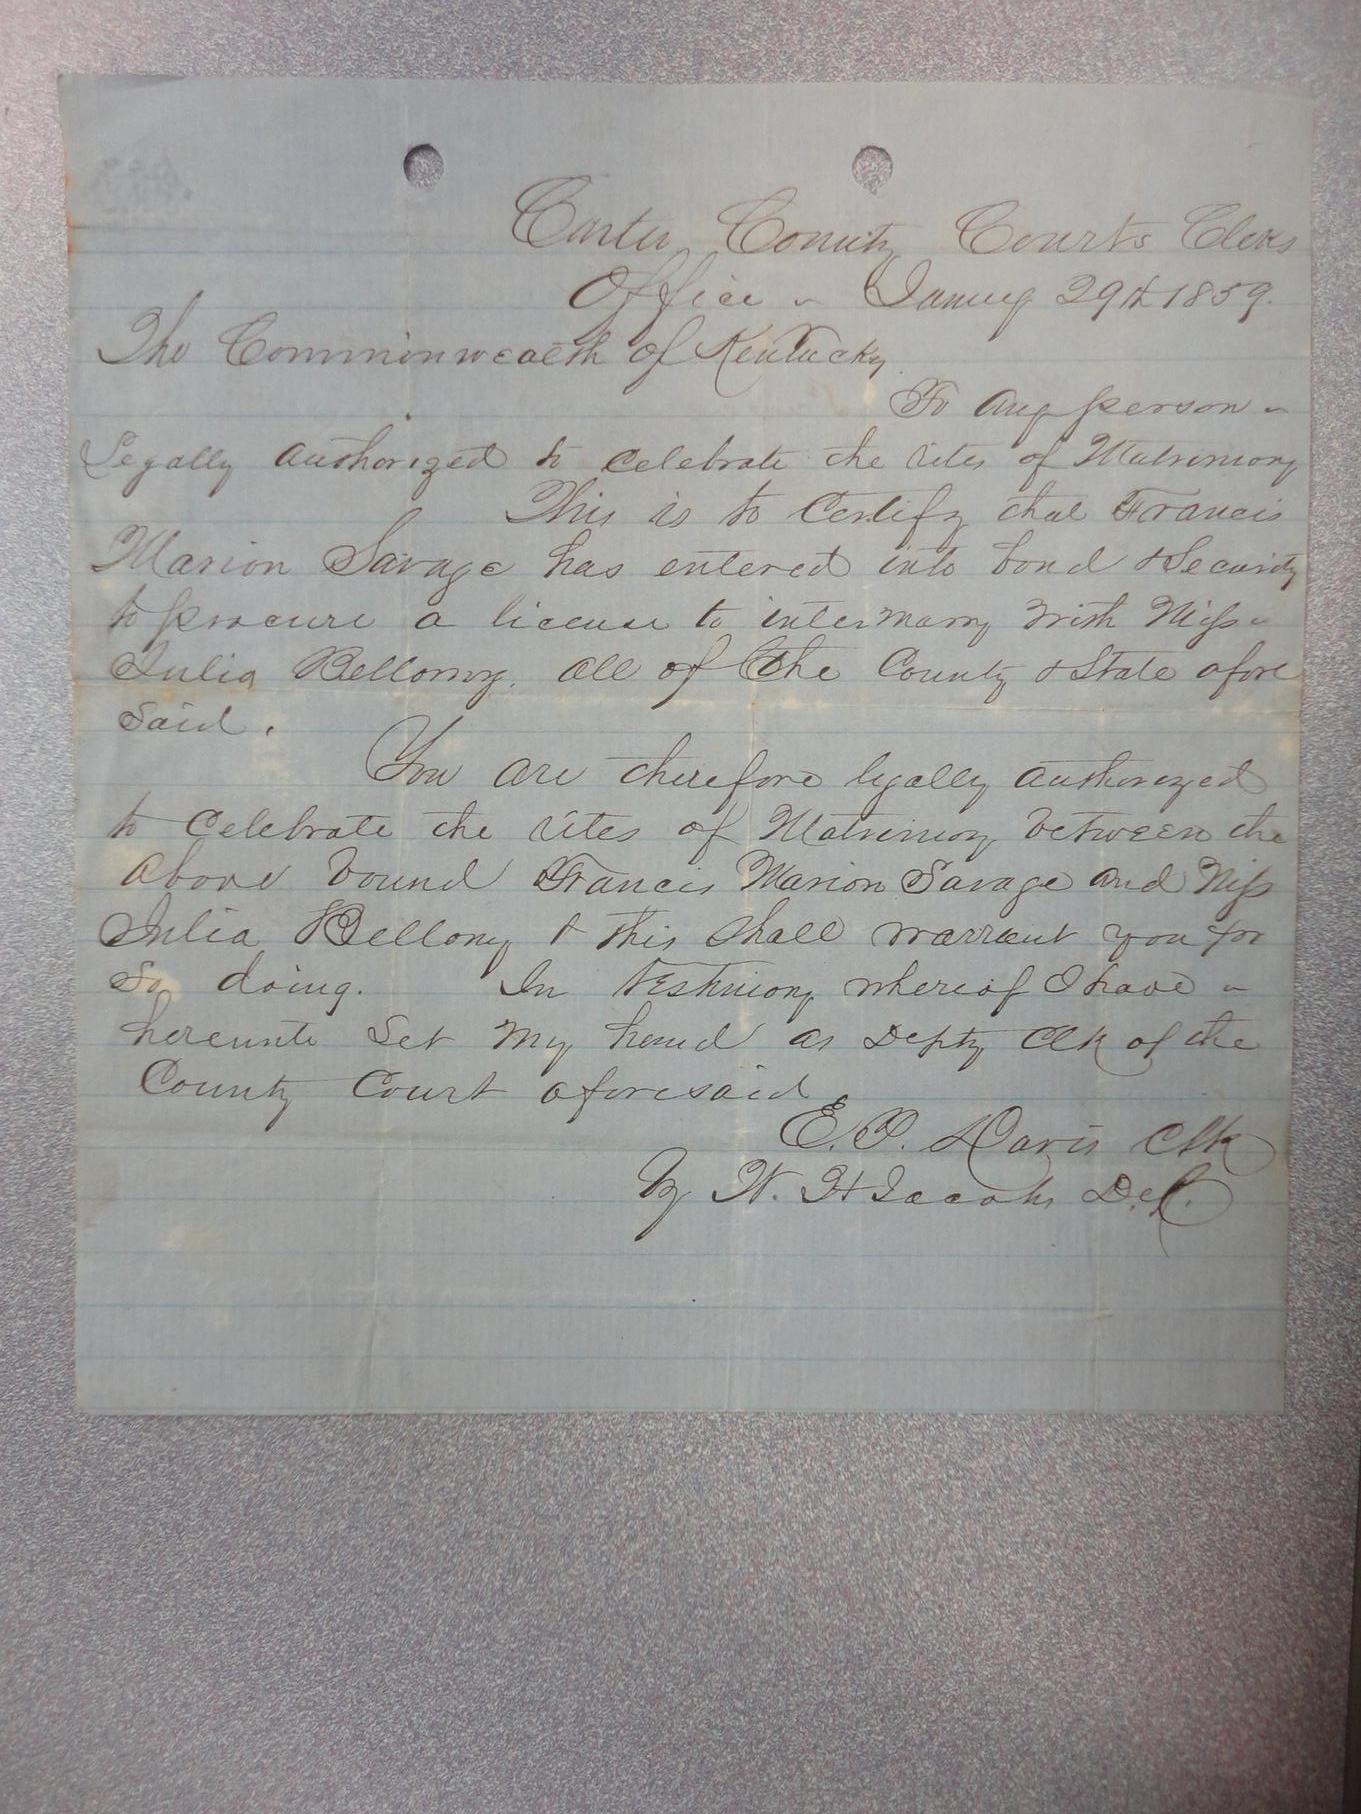 Carter County Courts Clerks
Office - January 29th 1859.
The Commonwealth of Kentucky
To any person -
Legally authorized to celebrate the rites of Matrimony
This is to Certify that Francis
Marion Savage has entered into bond & Security
to procure a license to intermarry with Miss -
Julia Bellomy. all of the County & State afore
Said.
You are therefore legally authorized
to celebrate the rites of Matrimony between the
above bound Francis Marion Savage and Miss
Julia Bellomy & this shall warrant you for
So doing. In testimony whereof I have -
hereunto Set my hand as Depty Clk of the
County Court aforesaid
E. Davis Clk
By W. H Jacobs D.C.